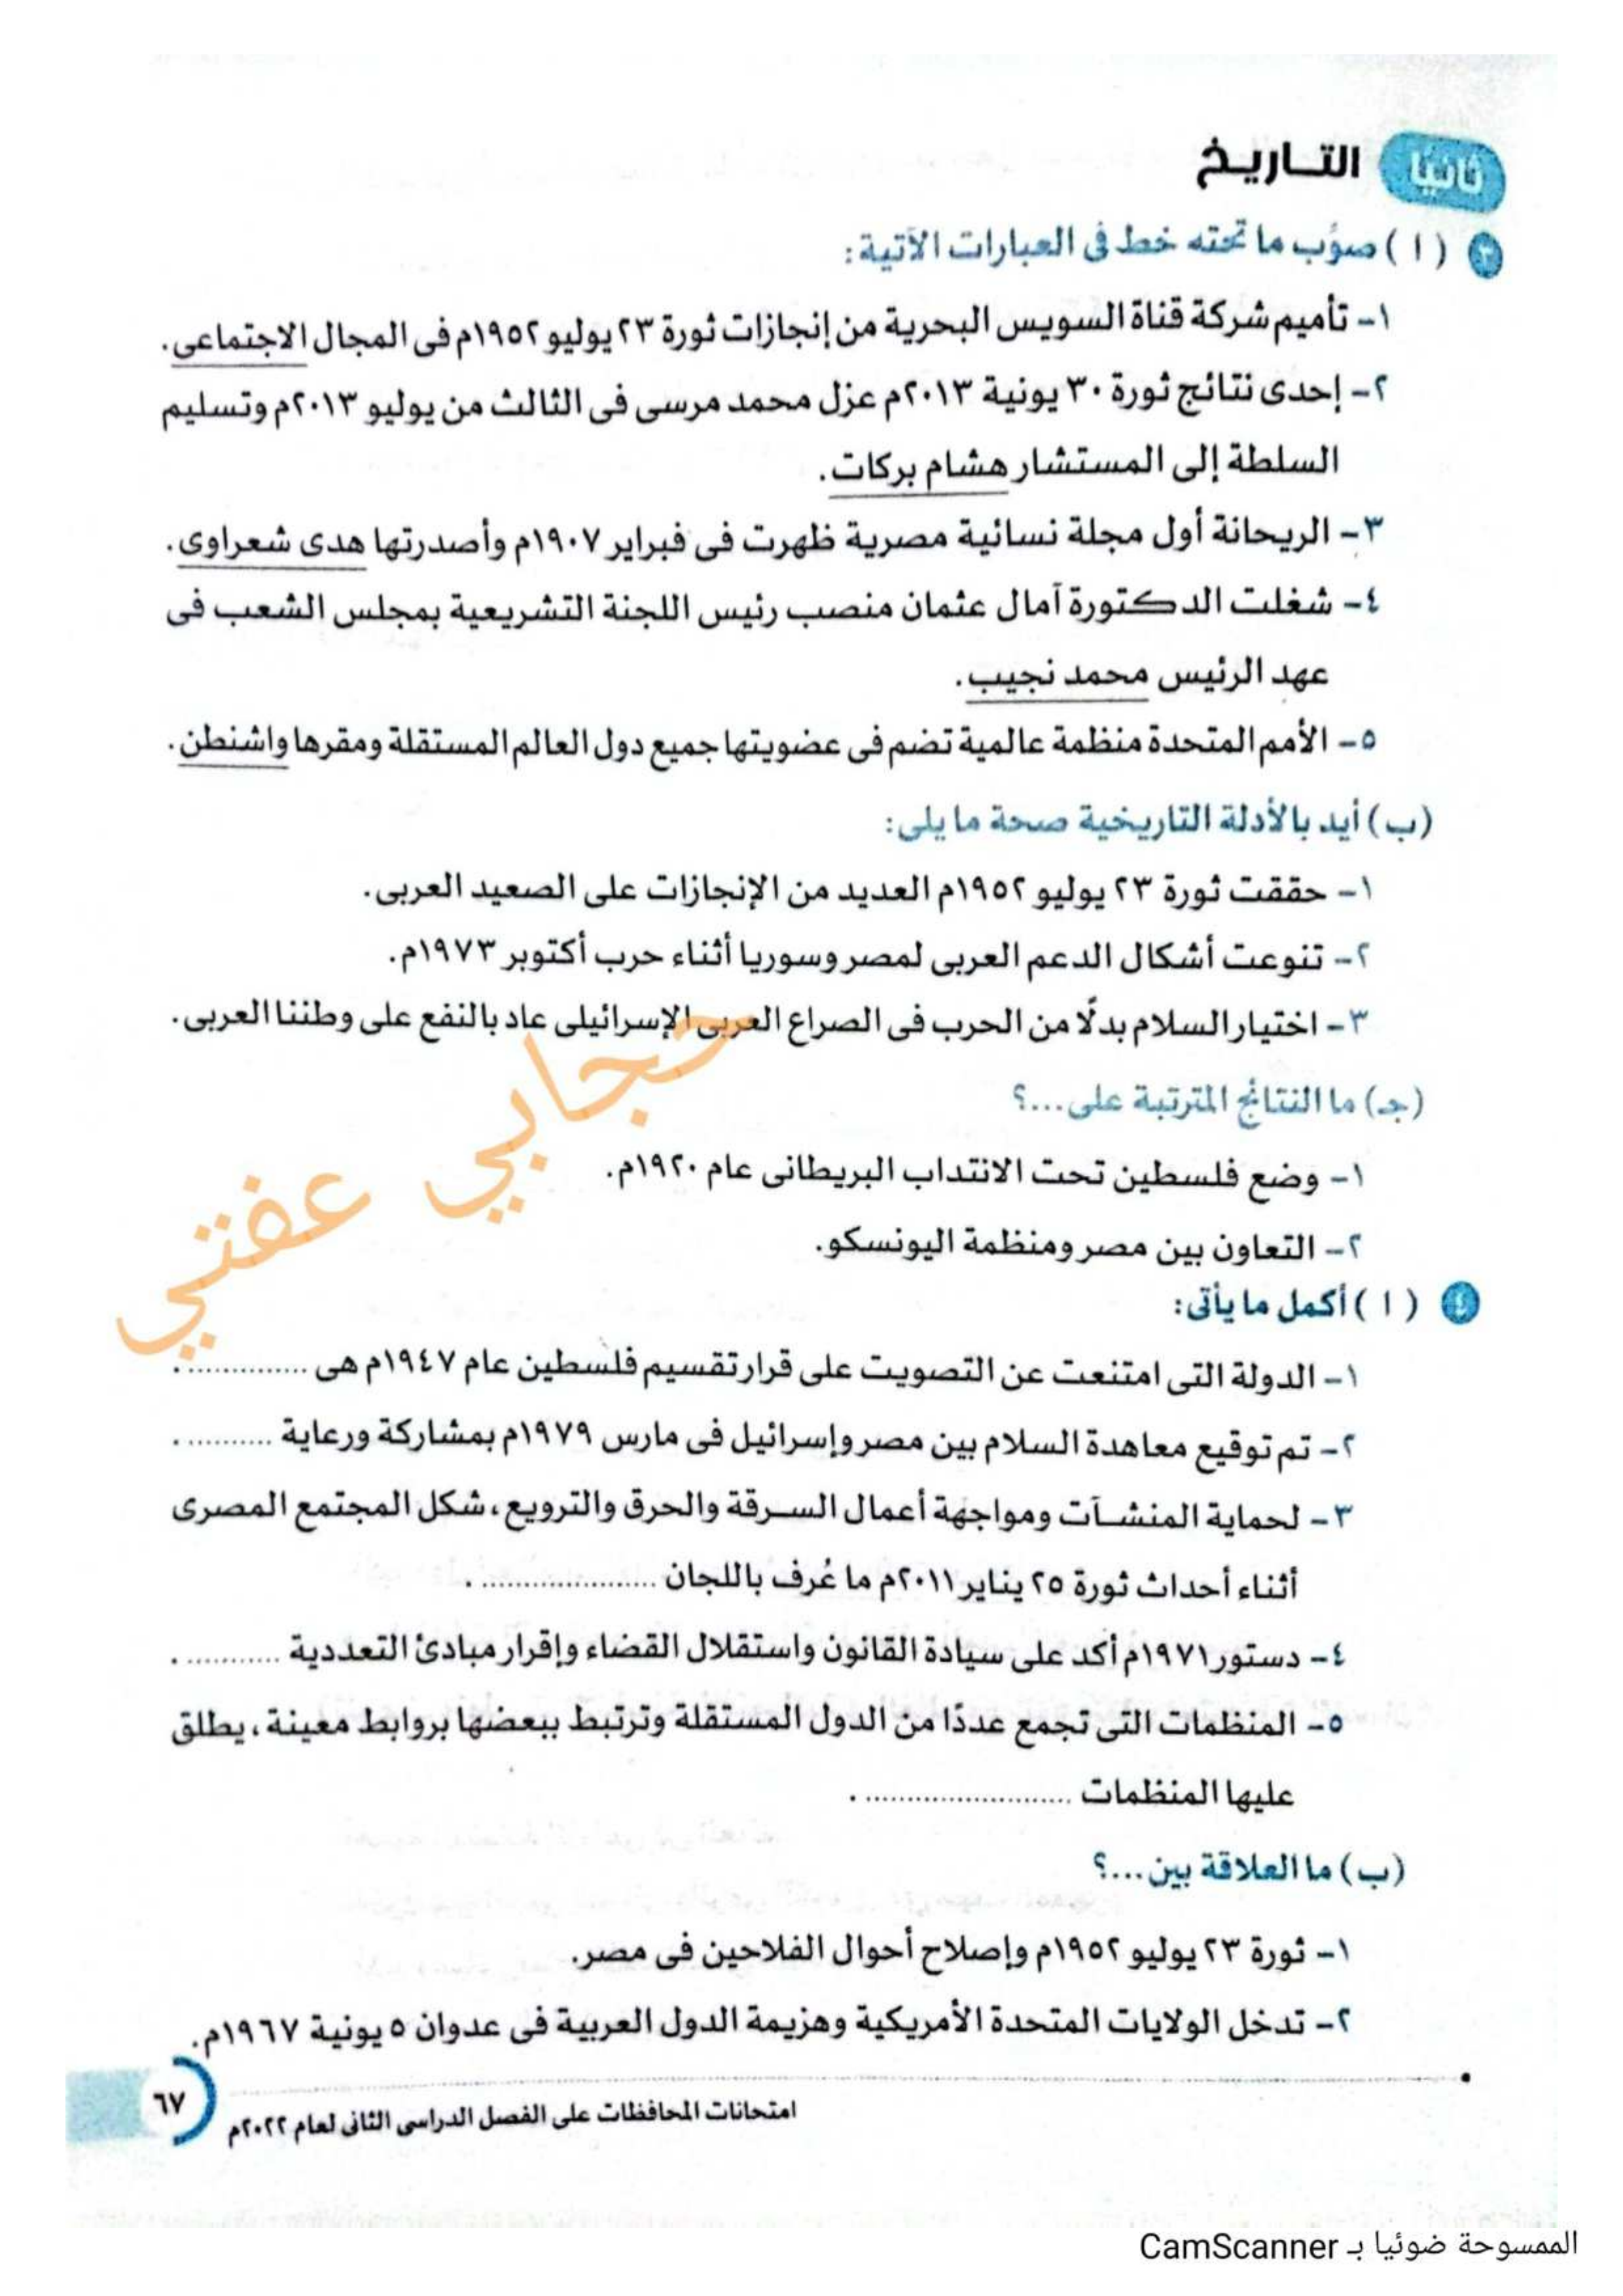 ثانيًا التاريخ
٣ ( ا ) صوّب ما تحته خط فى العبارات الآتية:
١- تأميم شركة قناة السويس البحرية من إنجازات ثورة ٢٣ يوليو ١٩٥٢م فى المجال الاجتماعى.
٢- إحدى نتائج ثورة ٣٠ يونية ٢٠١٣م عزل محمد مرسى فى الثالث من يوليو ٢٠١٣م وتسليم
السلطة إلى المستشار هشام بركات.
٣- الريحانة أول مجلة نسائية مصرية ظهرت فى فبراير ١٩٠٧م وأصدرتها هدى شعراوى.
٤- شغلت الدكتورة آمال عثمان منصب رئيس اللجنة التشريعية بمجلس الشعب فى
عهد الرئيس محمد نجيب.
٥- الأمم المتحدة منظمة عالمية تضم فى عضويتها جميع دول العالم المستقلة ومقرها واشنطن.
(ب) أيد بالأدلة التاريخية صحة ما يلى:
١- حققت ثورة ٢٣ يوليو ١٩٥٢م العديد من الإنجازات على الصعيد العربى.
٢- تنوعت أشكال الدعم العربى لمصر وسوريا أثناء حرب أكتوبر ١٩٧٣م.
٣- اختيار السلام بدلًا من الحرب فى الصراع العربى الإسرائيلى عاد بالنفع على وطننا العربى.
حجابي عفتي
(جـ) ما النتائج المترتبة على...؟
١- وضع فلسطين تحت الانتداب البريطانى عام ١٩٢٠م.
٢- التعاون بين مصر ومنظمة اليونسكو.
٤ ( ا ) أكمل ما يأتى:
١- الدولة التى امتنعت عن التصويت على قرار تقسيم فلسطين عام ١٩٤٧م هى .............. .
٢- تم توقيع معاهدة السلام بين مصر وإسرائيل فى مارس ١٩٧٩م بمشاركة ورعاية .......... .
٣- لحماية المنشآت ومواجهة أعمال السرقة والحرق والترويع، شكل المجتمع المصرى
أثناء أحداث ثورة ٢٥ يناير ٢٠١١م ما عُرف باللجان ..................... .
٤- دستور ١٩٧١م أكد على سيادة القانون واستقلال القضاء وإقرار مبادئ التعددية ........... .
٥- المنظمات التى تجمع عددًا من الدول المستقلة وترتبط ببعضها بروابط معينة، يطلق
عليها المنظمات ......................... .
(ب) ما العلاقة بين...؟
١- ثورة ٢٣ يوليو ١٩٥٢م وإصلاح أحوال الفلاحين فى مصر.
٢- تدخل الولايات المتحدة الأمريكية وهزيمة الدول العربية فى عدوان ٥ يونية ١٩٦٧م.
امتحانات المحافظات على الفصل الدراسى الثانى لعام ٢٠٢٢م
٦٧
الممسوحة ضوئيا بـ CamScanner